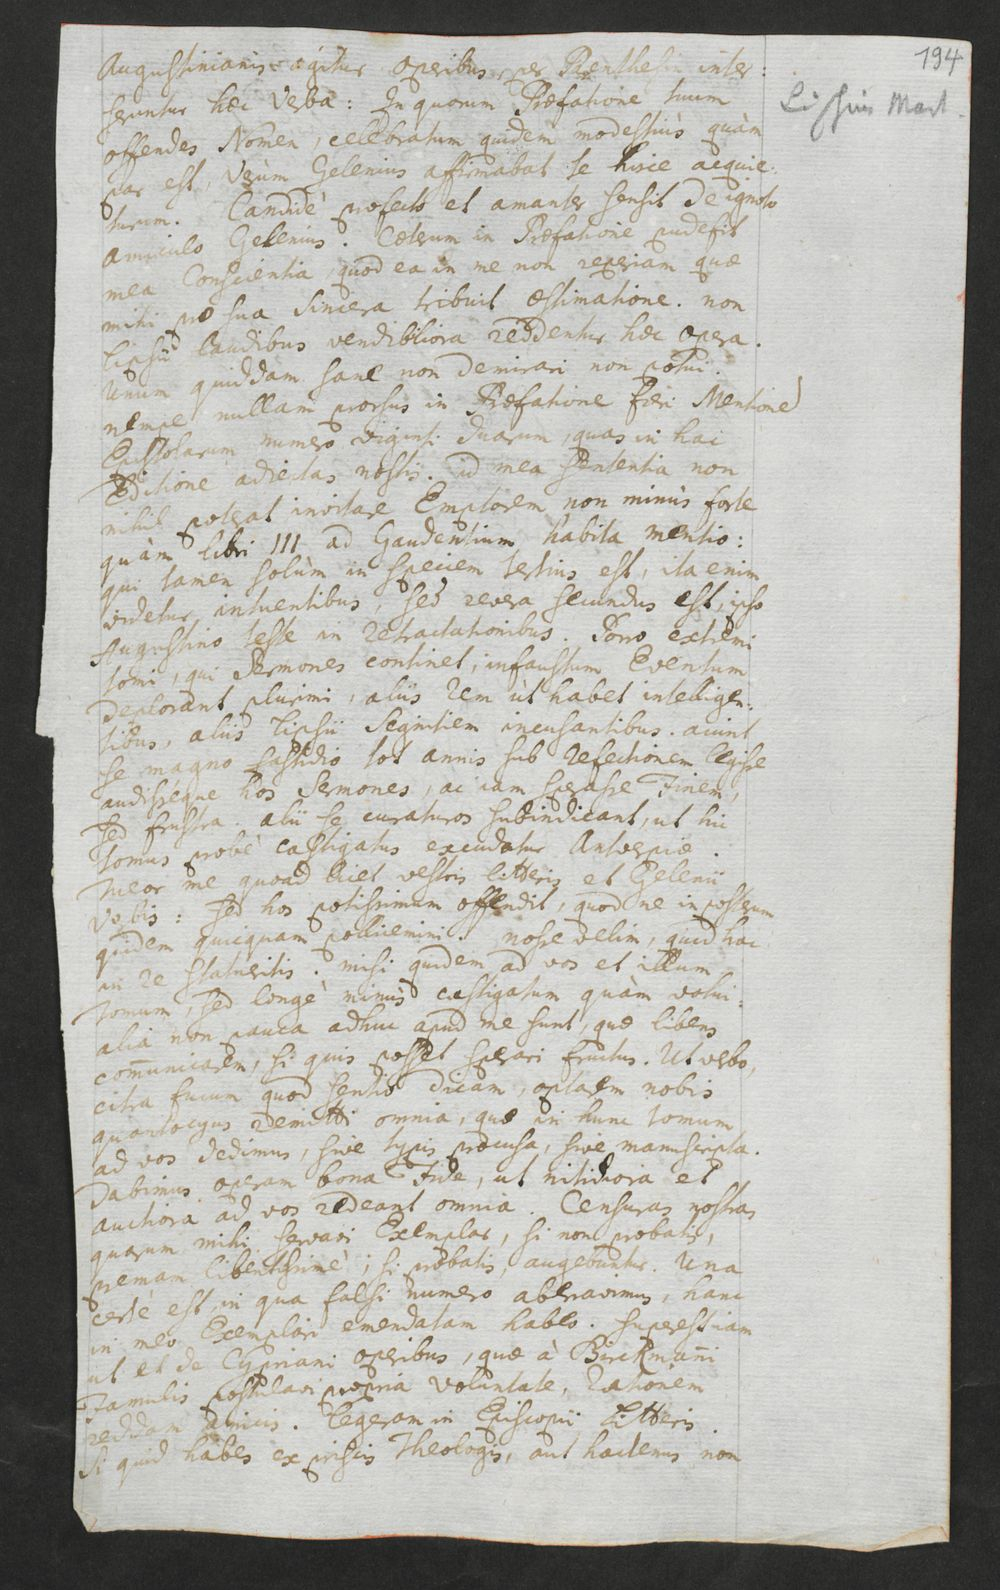 194
Lipsius Mart.
Augustinianis agitur operibus, per Parenthesin inter:
seruntur haec verba: In quorum Praefatione tuum
offendes Nomen, celebratum quidem modestiùs quàm
par est, verùm Gelenius affirmabat te hisce acquie:
turum. Candidè profecto et amanter sensit de ignoto
amiculo Gelenius. Caeterum in Praefatione pudefit
mea Conscientia, quod ea in me non reperiam quae
mihi pro sua sincera tribuit aestimatione. non
Lipsii laudibus vendibiliora reddentur haec opera.
Unum quiddam sane non demirari non potui.
nempe nullam prorsus in Praefatione fieri Mentione
Epistolarum numero viginti duarum, quas in hac
Editione adiectas nostis. id mea sententia non
nihil poterat invitare Emptorem non minùs forte
quàm libri III ad Gaudentium habita mentio:
qui tamen solùm in speciem tertius est, ita enim
videtur intuentibus, sed revera secundus est, ipso
Augustino teste in retractationibus. Porro extremi
tomi, qui Sermones continet, infaustum Eventum
deplorant plurimi, aliis rem ut habet intelligen:
tibus, aliis Lipsii segnitiem incusantibus. aiunt
se magno fastidio tot annis sub refectionem legisse
audisseque hos Sermones, ac iam sperasse Finem,
sed frustra. alii se curaturos subindicant, ut hic
tomus probè castigatus excudatur Antverpiae.
tueor me quoad licet vestris litteris et Gelenii
verbis: sed hos potissimum offendit, quod ne in posterum
quidem quicquam pollicemini. nosse velim, quid hac
in re statueritis. misi quidem ad vos et illum
tomum, sed longè minùs castigatum quàm volui:
alia non pauca adhuc apud me sunt, quae libens
com̄unicarem, si quis posset sperari fructus. Ut verbo,
citra fucum quod sentio dicam, optarem nobis
quantocyus remitti omnia, quae in hunc tomum
ad vos dedimus, sive typis procusa, sive manuscripta.
dabimus operam bona Fide, ut nitidiora et
auctiora ad vos redeant omnia. Censuras nostras
quarum mihi servavi Exemplar, si non probatis,
premam libentissimè; si probatis, augebuntur. Una
certè est, in qua falsi numero aberravimus, hanc
in meo Exemplari emendatam habeo. superest iam
ut et de Cypriani operibus, quae à Birckman̄i
Famulis postulavi propria voluntate, rationem
reddam amicis. legeram in Episcopii litteris.
Si quid habes ex priscis Theologis, aut hactenus non